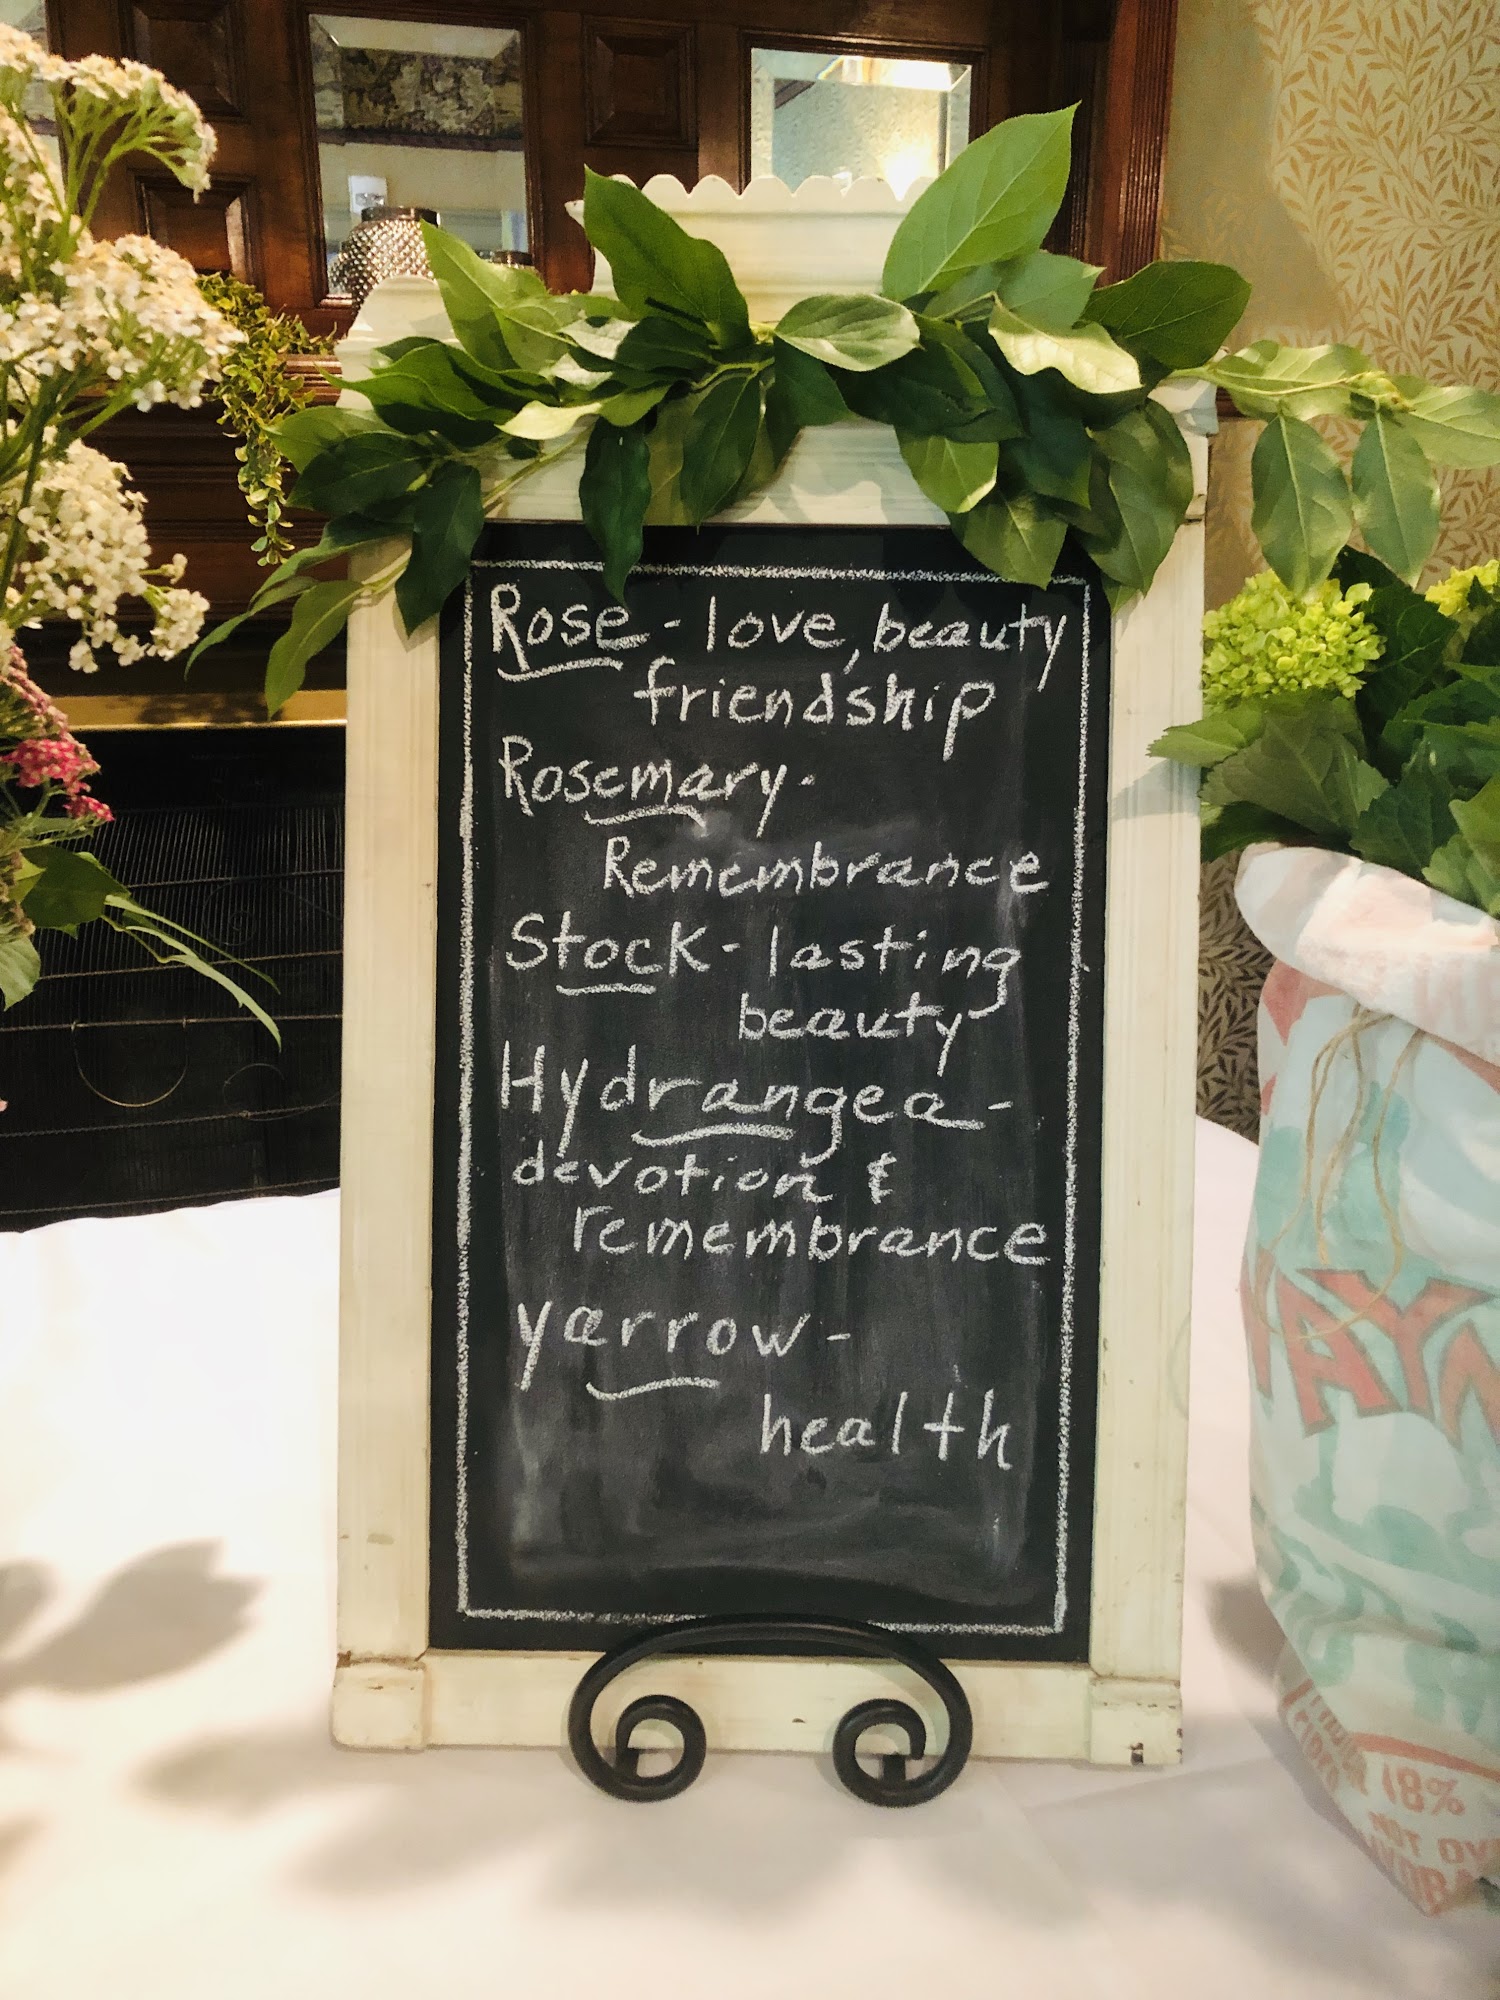 Rose - love, beauty
friendship
Rosemary -
Remembrance
Stock - lasting
beauty
Hydrangea -
devotion &
remembrance
yarrow -
health
18%
NOT